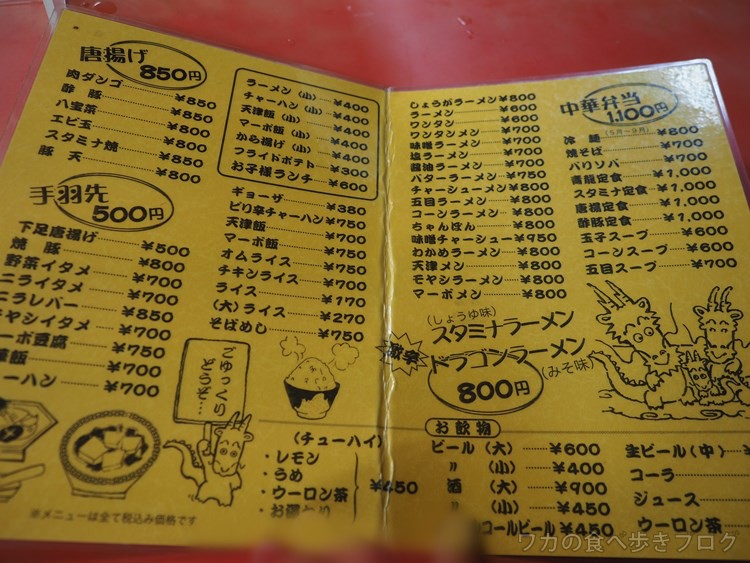 唐揚げ 850円
肉ダンゴ ¥850
酢豚 ¥850
八宝菜 ¥850
エビ玉 ¥800
スタミナ焼 ¥850
豚天 ¥800
手羽先 500円
下足唐揚げ ¥500
焼豚 ¥800
野菜イタメ ¥700
ニライタメ ¥700
ニラレバー ¥850
モヤシイタメ ¥700
ーボ豆腐 ¥750
飯 ¥700
ーハン ¥700
ラーメン(小) ¥400
チャーハン(小) ¥400
天津飯(小) ¥400
マーボ飯(小) ¥400
から揚げ(小) ¥400
フライドポテト ¥300
お子様ランチ ¥600
ギョーザ ¥380
ピリ辛チャーハン ¥750
天津飯 ¥700
マーボ飯 ¥750
オムライス ¥750
チキンライス ¥700
ライス ¥170
(大)ライス ¥270
そばめし ¥750
ごゆっくり
どうぞ…
(チューハイ)
・レモン
・うめ
・ウーロン茶
¥450
※メニューは全て税込み価格です
しょうがラーメン ¥800
ラーメン ¥600
ワンタン ¥600
ワンタンメン ¥700
味噌ラーメン ¥700
塩ラーメン ¥700
醤油ラーメン ¥700
バターラーメン ¥750
チャーシューメン ¥800
五目ラーメン ¥800
コーンラーメン ¥800
ちゃんぽん ¥800
味噌チャーシュー ¥950
わかめラーメン ¥800
天津メン ¥800
モヤシラーメン ¥800
マーボメン ¥800
(しょうゆ味)
スタミナラーメン
激辛 ドラゴンラーメン
(みそ味)
800円
中華弁当 1,100円
(5月〜9月)
冷麺 ¥800
焼そば ¥700
バリソバ ¥700
青龍定食 ¥1,000
スタミナ定食 ¥1,000
唐揚定食 ¥1,000
酢豚定食 ¥1,000
玉子スープ ¥600
コーンスープ ¥600
五目スープ ¥700
お飲物
ビール(大) ¥600
〃(小) ¥400
酒(大) ¥900
〃(小) ¥450
コールビール ¥450
生ビール(中)
コーラ
ジュース
ウーロン茶
ワカの食べ歩きブログ